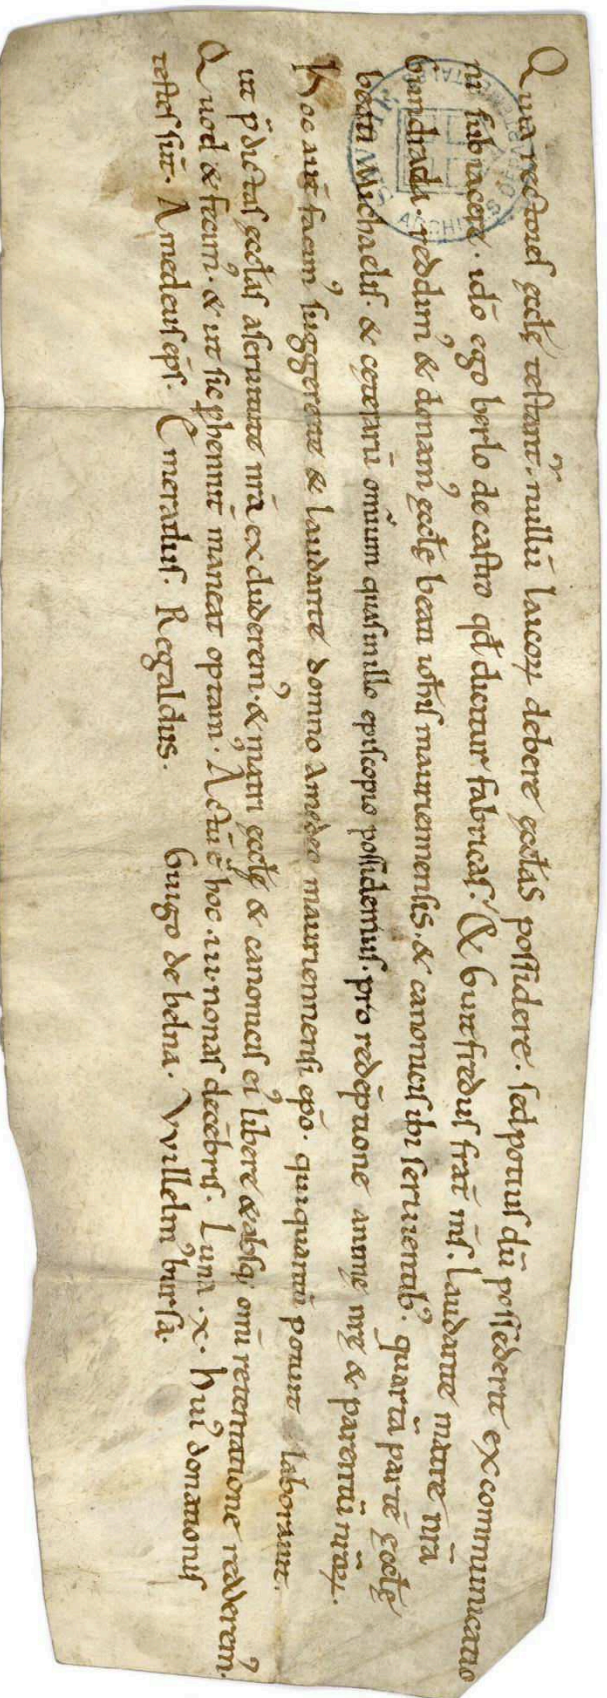 Quia rectores ęcctę testant᷒. nullū laicoꝝ debere ęcctas possidere. sed potius dū possederit excommunicatio
ni subiacere. idō ego berlo de castro qđ dicitur fabricas. & Guitfredus frat̄ ms̄. Laudante matre nrā
biandrada. reddim᷒ & donam᷒ ęcctę beati ioh̄is mauriennensis. & canonicis ibi seruientib᷒. quartā partē ęcctę
beati Michaelis. & ceterarū om̄ium quas in illo episcopio possidemus. pro redēptione animę nrę & parentū nrōꝝ.
Hoc aut̄ facim᷒ suggerente & laudante domno Amedeo mauriennensi ep̄o. qui quantū potuit laborauit.
ut p̄dictas ęcctas a seruitute nrā excluderem᷒. & matri ęcctę & canonicis ei᷒ libere & absq; om̄i retentatione redderem᷒.
Quod & fecim᷒. & ut sic ꝑhennit̄ maneat optam᷒. Actū ē hoc .iii. nonas decēbris. Luna .x. Hui᷒ donationis
testes sūt. Amedeus ep̄s. Emeradus. Regaldus. Guigo de belna. VVillelm᷒ bursa.